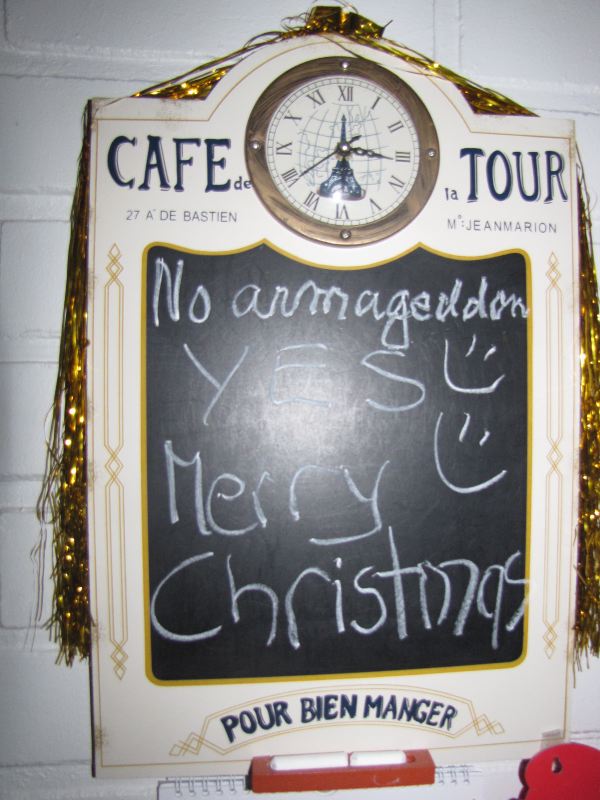 XII
I
II
III
IIII
VI
VIII
IX
X
XI
CAFE de la TOUR
27 Aᵉ DE BASTIEN
Mᵒ: JEANMARION
No armageddon
YES
Merry
Christmas
POUR BIEN MANGER